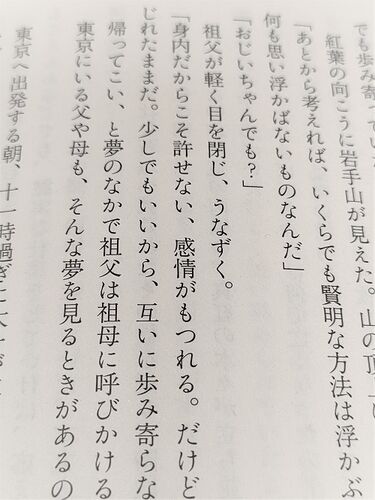 でも歩み寄
紅葉の向こうに岩手山が見えた。山の頂上に
「あとから考えれば、いくらでも賢明な方法は浮かぶ
何も思い浮かばないものなんだ」
「おじいちゃんでも？」
祖父が軽く目を閉じ、うなずく。
「身内だからこそ許せない、感情がもつれる。だけど
じれたままだ。少しでもいいから、互いに歩み寄らな
帰ってこい、と夢のなかで祖父は祖母に呼びかける
東京にいる父や母も、そんな夢を見るときがあるの
東京へ出発する朝、十一時過ぎに